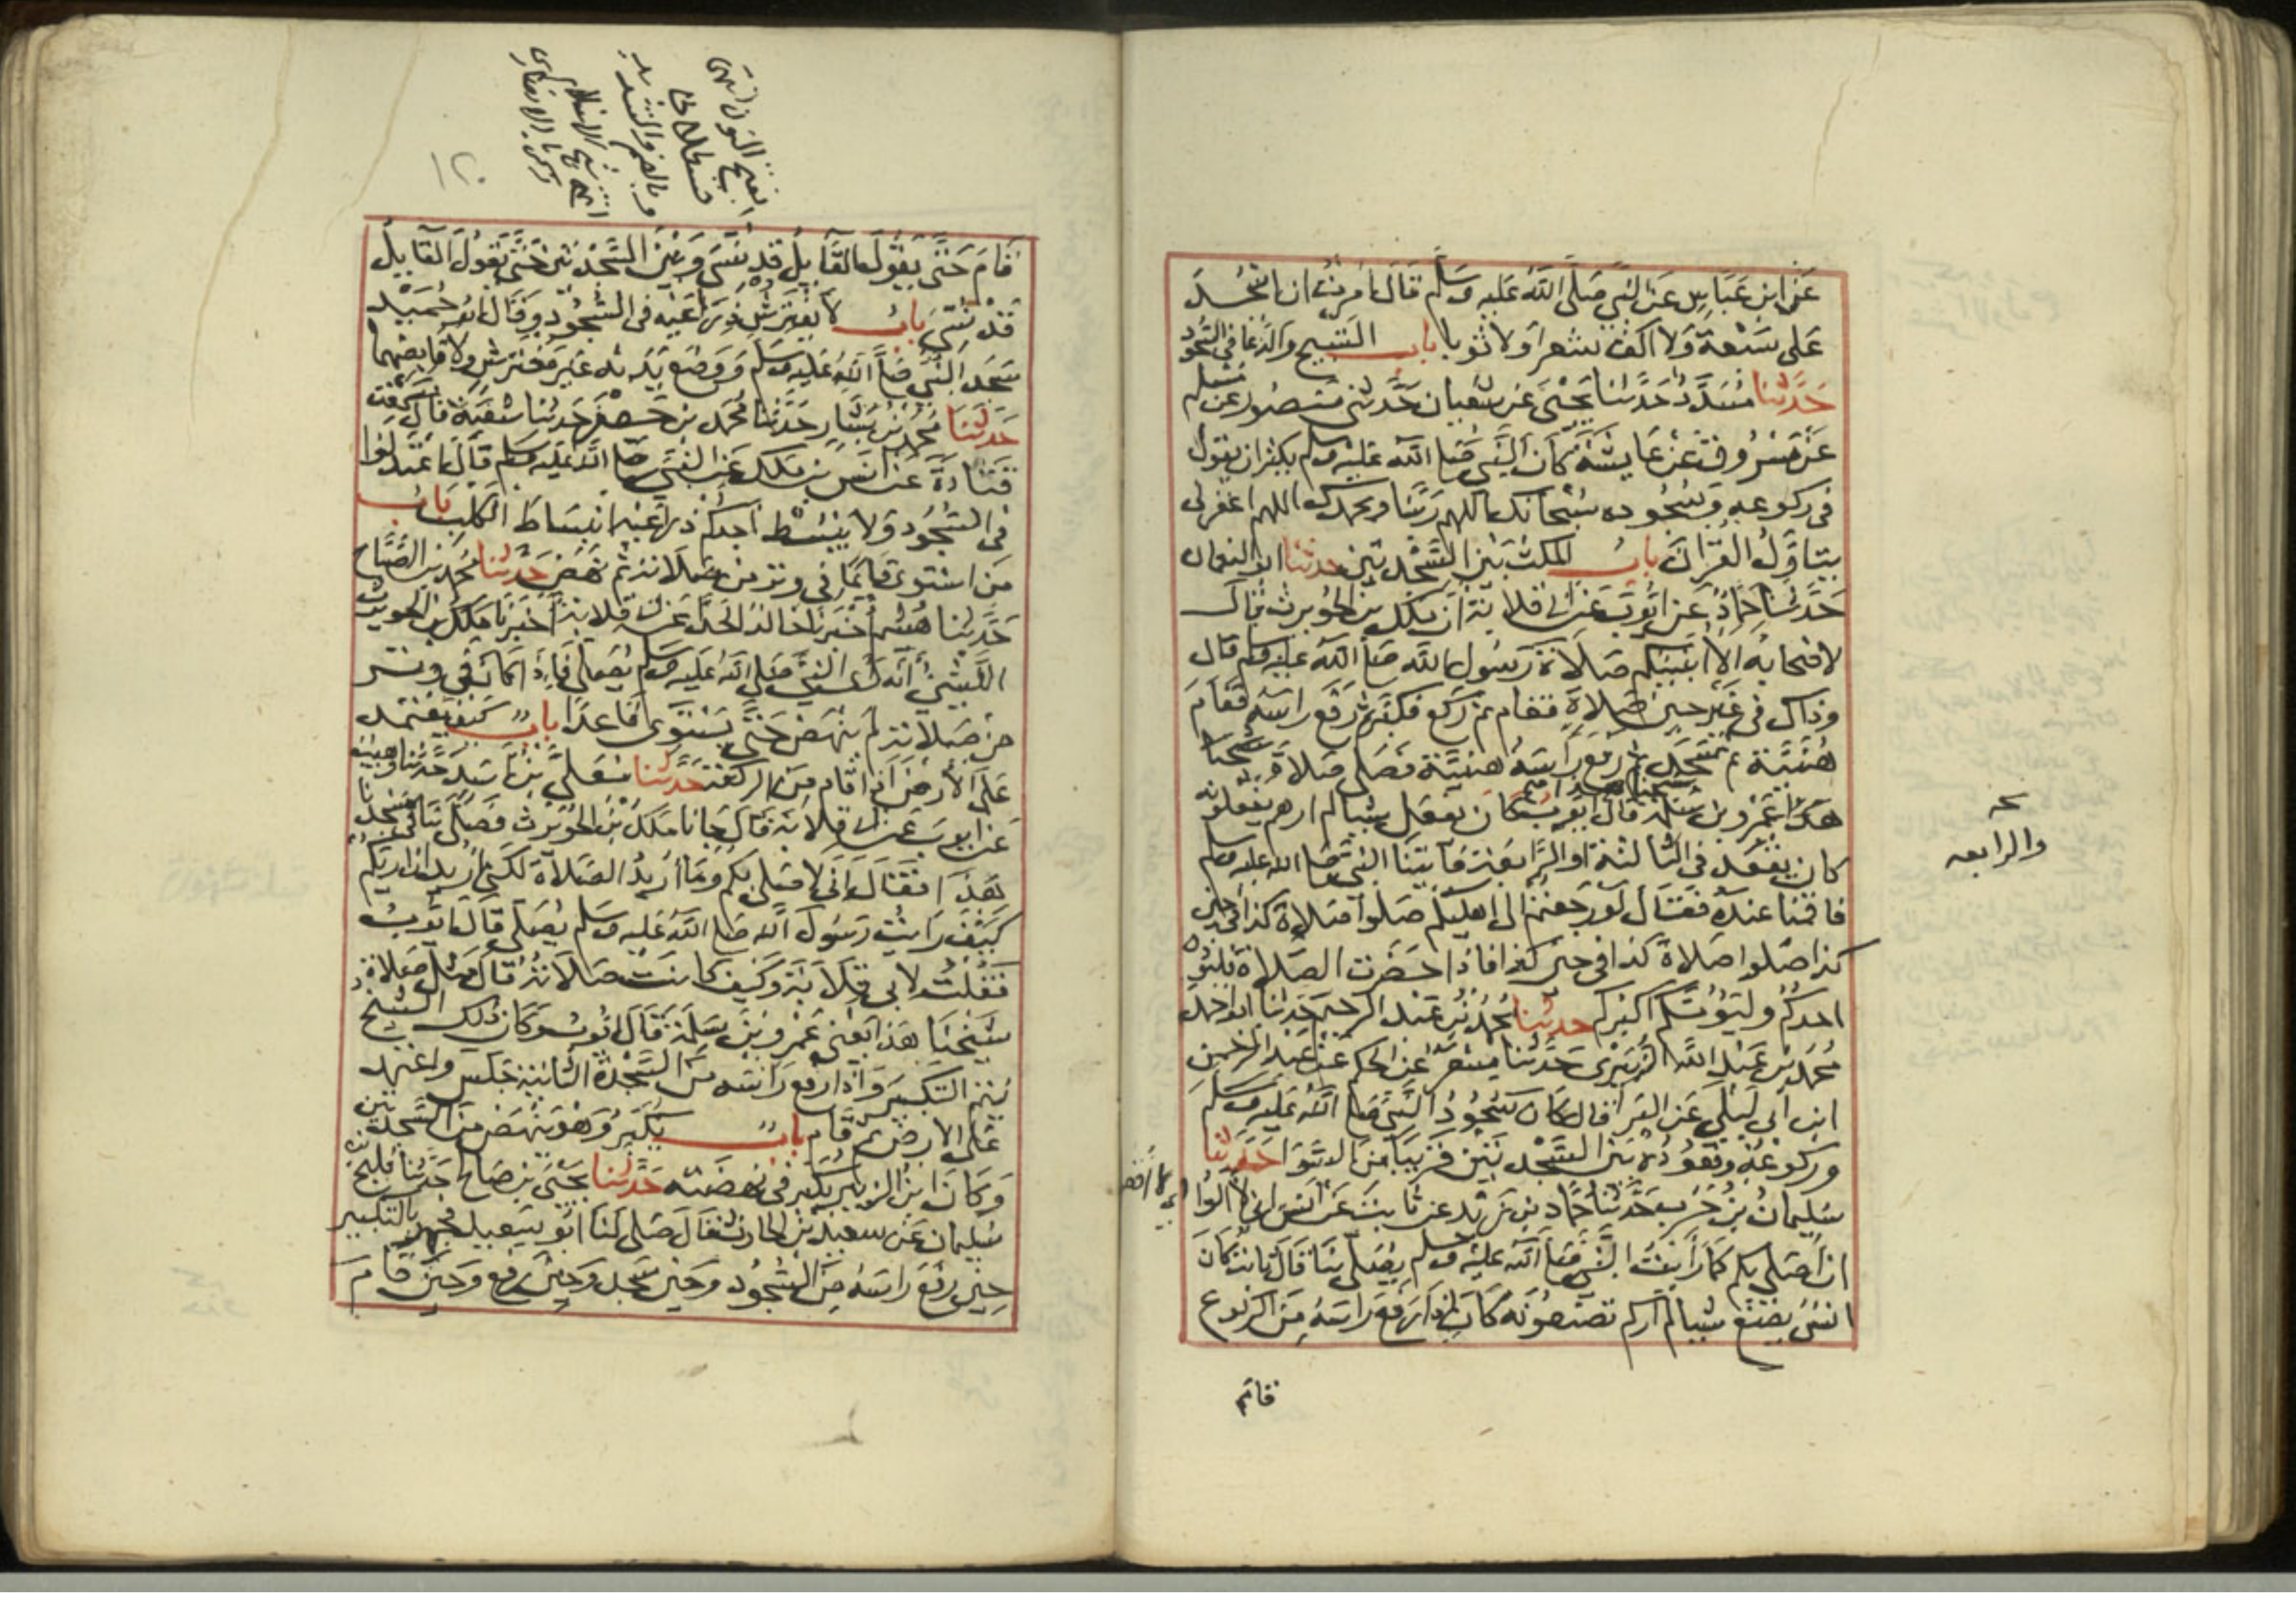 عن ابن عباس عن النبي صلى الله عليه وسلم قال امرت ان اسجد
على سبعة ولا اكف شعرا ولا ثوبا باب التسبيح والدعا في السجود
حدثنا مسدد حدثنا يحيى عن سفيان حدثني منصور عن مسلم
عن مسروق عن عايشة كان النبي صلى الله عليه وسلم يكثر ان يقول
في ركوعه وسجوده سبحانك اللهم ربنا وبحمدك اللهم اغفر لي
يتاول القران باب المكث بين السجدتين حدثنا ابو النعمان
حدثنا حماد عن ايوب عن ابي قلابة ان ملك بن الحويرث قال
لاصحابه الا انبيكم صلاة رسول الله صلى الله عليه وسلم قال
وذاك في غير حين صلاة فقام ثم ركع فكبر ثم رفع راسه فقام
هنية ثم سجد ثم رفع راسه هنية فصلى صلاة شيخنا
هذا عمرو بن سلمة قال ايوب كان يفعل شيا لم ارهم يفعلونه
كان يقعد في الثالثة او الرابعة فاتينا النبي صلى الله عليه وسلم
فاقمنا عنده فقال لو رجعتم الى اهليكم صلوا صلاة كذا في حين
كذا صلوا صلاة كذا في حين كذا فاذا حضرت الصلاة فليؤذن
احدكم وليؤمكم اكبركم حدثنا محمد بن عبد الرحيم حدثنا ابو احمد
محمد بن عبد الله الزبيري حدثنا مسعر عن الحكم عن عبد الرحمن
ابن ابي ليلى عن البرا قال كان سجود النبي صلى الله عليه وسلم
وركوعه وقعوده بين السجدتين قريبا من السوا حدثنا
سليمان بن حرب حدثنا حماد بن زيد عن ثابت عن انس اني لا آلوا
ان اصلي بكم كما رايت النبي صلى الله عليه وسلم يصلي بنا قال ثابت كان
انس يصنع شيا لم اركم تصنعونه كان اذا رفع راسه من الركوع
قام
والرابعه
قام حتى يقول القايل قد نسي وبين السجدتين حتى يقول القايل
قد نسي باب لا يفترش ذراعيه في السجود وقال ابو حميد
سجد النبي صلى الله عليه وسلم ووضع يديه غير مفترش ولا قابضهما
حدثنا محمد بن بشار حدثنا محمد بن جعفر حدثنا شعبة قال سمعت
قتادة عن انس بن ملك عن النبي صلى الله عليه وسلم قال اعتدلوا
في السجود ولا ينبسط احدكم ذراعيه انبساط الكلب باب
من استوى قايما في وتر من صلاته ثم نهض حدثنا محمد بن الصباح
حدثنا هشيم اخبرنا خالد الحذا عن ابي قلابة اخبرنا ملك بن الحويرث
الليثي انه راى النبي صلى الله عليه وسلم يصلي فاذا كان في وتر
من صلاته لم ينهض حتى يستوي قاعدا باب كيف يعتمد
على الارض اذا قام من الركعة حدثنا معلى بن اسد حدثنا وهيب
عن ايوب عن ابي قلابة قال جانا ملك بن الحويرث فصلى بنا في مسجدنا
هذا فقال اني لاصلي بكم وما اريد الصلاة لكني اريد ان اريكم
كيف رايت رسول الله صلى الله عليه وسلم يصلي قال ايوب
فقلت لابي قلابة وكيف كانت صلاته قال مثل صلاة
شيخنا هذا يعني عمرو بن سلمة قال ايوب وكان ذلك الشيخ
يتم التكبير واذا رفع راسه من السجدة الثانية جلس واعتمد
على الارض ثم قام باب يكبر وهو ينهض من السجدتين
وكان ابن الزبير يكبر في نهضته حدثنا يحيى بن صالح حدثنا فليح بن
سليمان عن سعيد بن الحارث قال صلى لنا ابو سعيد فجهر بالتكبير
حين رفع راسه من السجود وحين سجد وحين رفع وحين قام
١٢٠